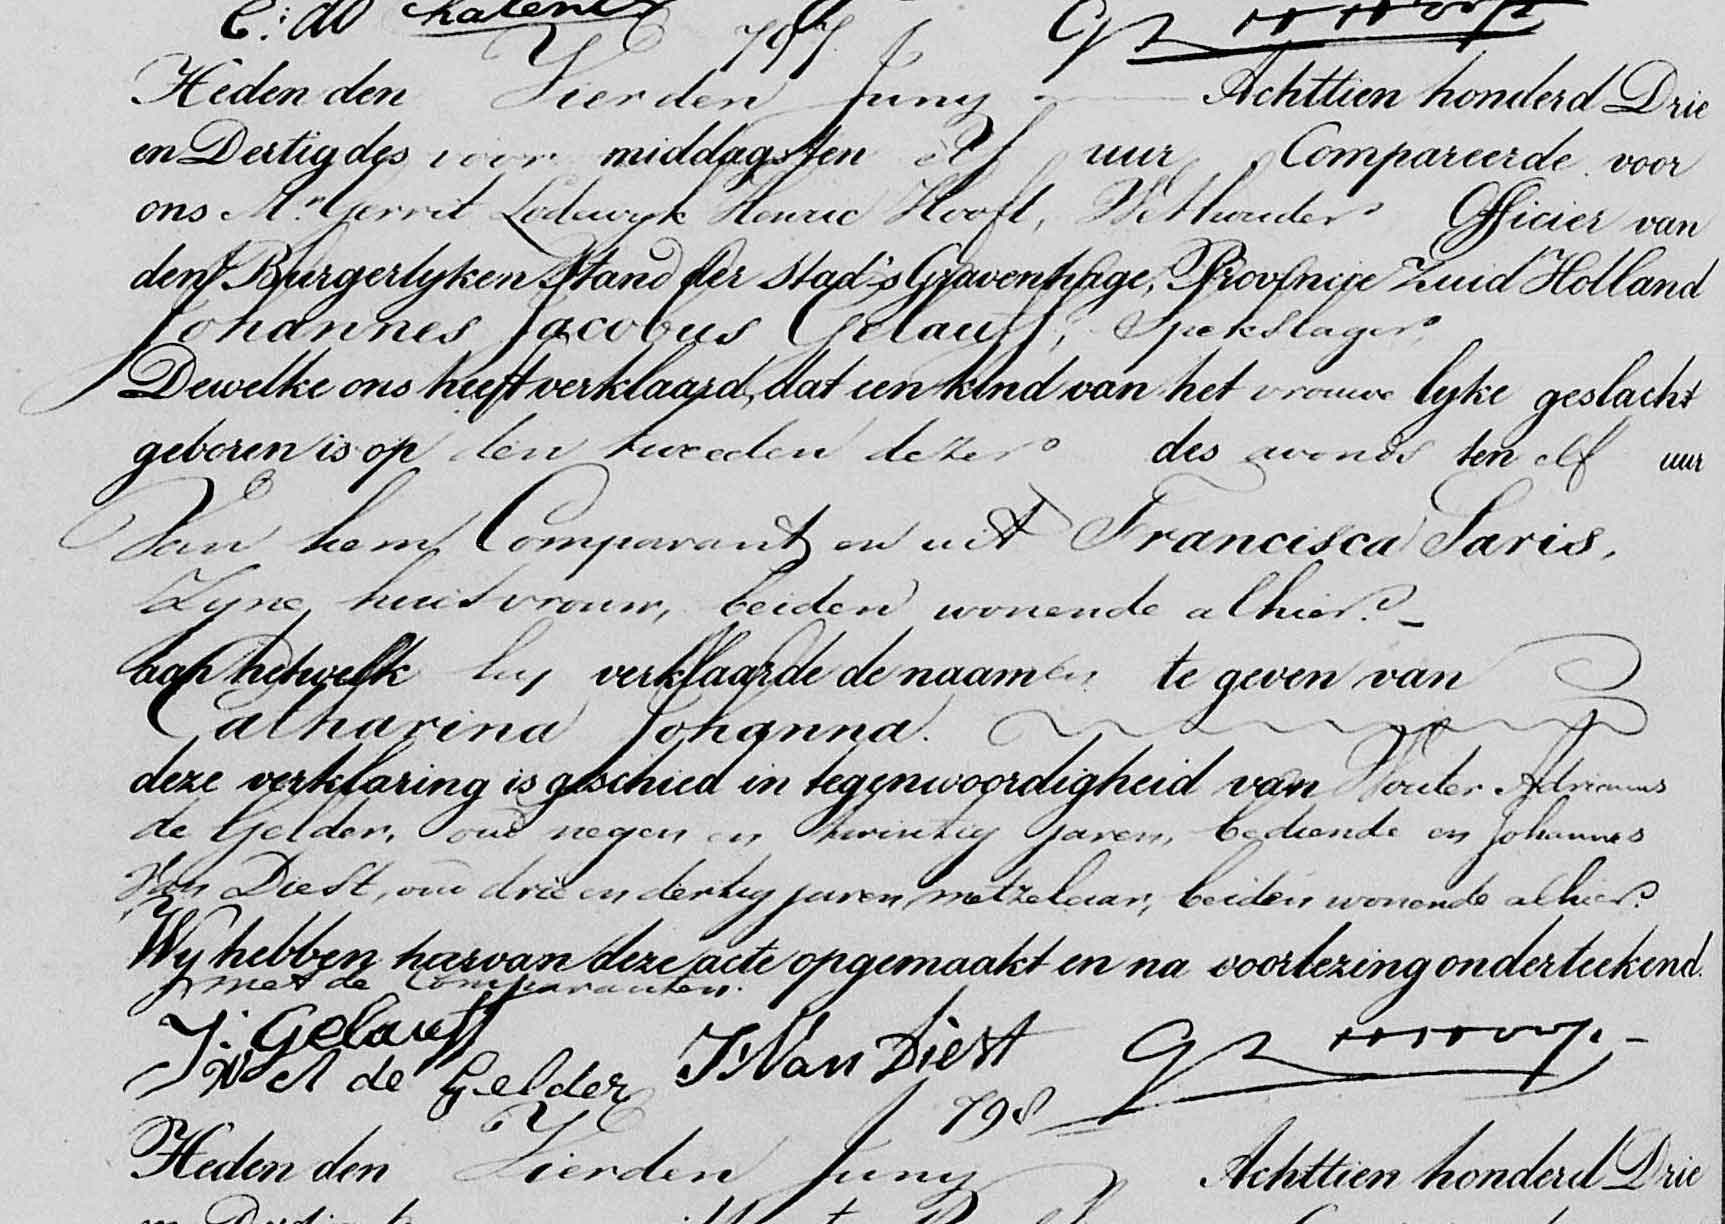 C: de
797.
Heden den Vierden Juny Achttien honderd Drie
en Dertig des voor middags ten elf uur Compareerde voor
ons Mr. Gerrit Lodewyk Henric Hooft, Wethouder Officier van
den Burgerlyken Stand der Stad 's Gravenhage, Provincie Zuid Holland
Johannes Jacobus Gelauff, Spekslager
Dewelke ons heeft verklaard, dat een kind van het vrouwelyke geslacht
geboren is op den tweeden dezer des avonds ten elf uur
Van hem Comparant en uit Francisca Saris,
Zyne huisvrouw, beiden wonende alhier.
aan hetwelk hy verklaarde de naamen te geven van
Catharina Johanna.
deze verklaring is geschied in tegenwoordigheid van Wouter Adrianus
de Gelder, oud negen en twintig jaren, bediende en Johannes
Van Diest, oud drie en dertig jaren, metzelaar, beiden wonende alhier.
Wy hebben hiervan deze acte opgemaakt en na voorlezing onderteekend.
met de Comparanten.
J: Gelauff J: Van Diest
W A de Gelder
798
Heden den Vierden Juny Achttien honderd Drie